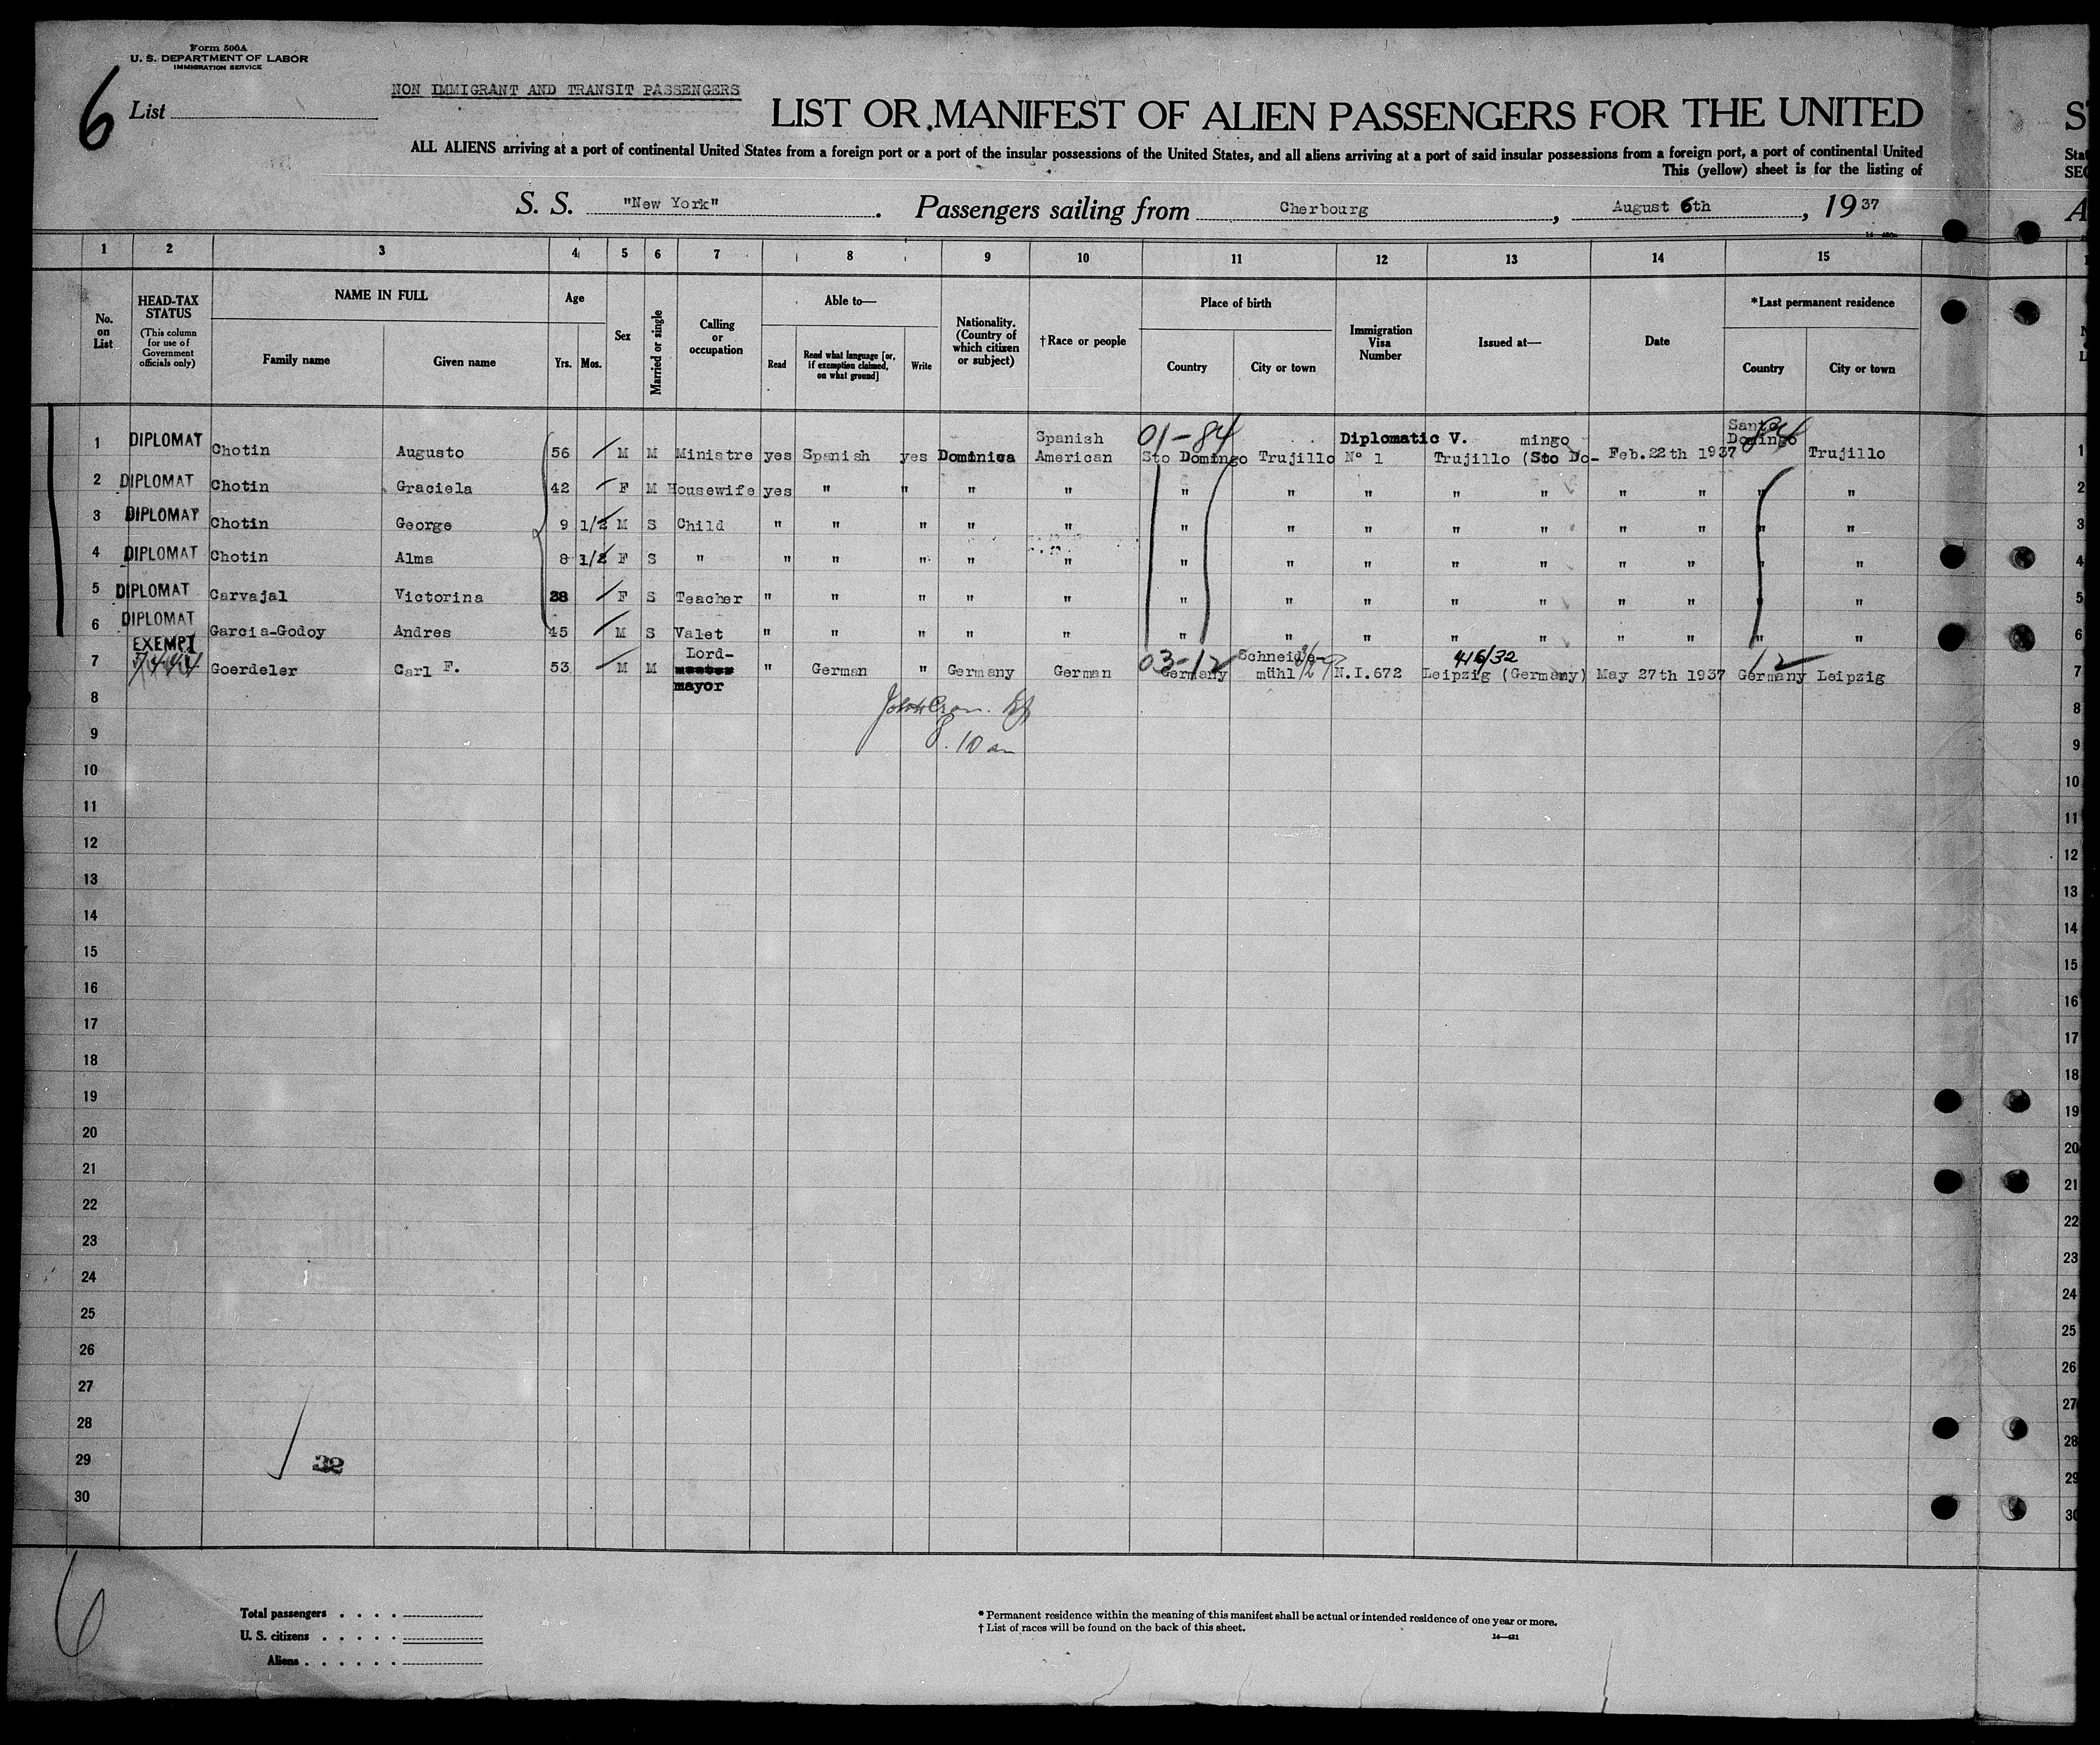 Form 500A
U. S. DEPARTMENT OF LABOR
IMMIGRATION SERVICE
6
List
NON IMMIGRANT AND TRANSIT PASSENGERS
LIST OR MANIFEST OF ALIEN PASSENGERS FOR THE UNITED
ALL ALIENS arriving at a port of continental United States from a foreign port or a port of the insular possessions of the United States, and all aliens arriving at a port of said insular possessions from a foreign port, a port of continental United
This (yellow) sheet is for the listing of
S. S. "New York". Passengers sailing from Cherbourg, August 6th, 1937
1 2 3 4 5 6 7 8 9 10 11 12 13 14 15
No. on List
HEAD-TAX STATUS (This column for use of Government officials only)
NAME IN FULL
Family name
Given name
Age
Yrs. Mos.
Sex
Married or single
Calling or occupation
Able to—
Read
Read what language [or, if exemption claimed, on what ground]
Write
Nationality. (Country of which citizen or subject)
†Race or people
Place of birth
Country
City or town
Immigration Visa Number
Issued at—
Date
*Last permanent residence
Country
City or town
1 DIPLOMAT Chotin Augusto 56 M M Ministre yes Spanish yes Dominica Spanish American 01-84 Sto Domingo Trujillo Diplomatic V. N° 1 Trujillo (Sto Domingo Feb. 22th 1937 Santo Domingo 84 Trujillo 1
2 DIPLOMAT Chotin Graciela 42 F M Housewife yes " " " " " " " " " " " " " 2
3 DIPLOMAT Chotin George 9 1/2 M S Child " " " " " " " " " " " " " " 3
4 DIPLOMAT Chotin Alma 8 1/2 F S " " " " " " " " " " " " " " " 4
5 DIPLOMAT Carvajal Victorina 28 F S Teacher " " " " " " " " " " " " " 5
6 DIPLOMAT Garcia-Godoy Andres 45 M S Valet " " " " " " " " " " " " " " 6
7 EXEMPT Goerdeler Carl F. 53 M M Lord-mayor " German " Germany German 03-12 Germany Schneidemühl N.I.672 416/32 Leipzig (Germany) May 27th 1937 12 Germany Leipzig 7
8 8
9 8.10 am 9
10 10
11 11
12 12
13 13
14 14
15 15
16 16
17 17
18 18
19 19
20 20
21 21
22 22
23 23
24 24
25 25
26 26
27 27
28 28
29 32 29
30 30
6
Total passengers
U. S. citizens
Aliens
* Permanent residence within the meaning of this manifest shall be actual or intended residence of one year or more.
† List of races will be found on the back of this sheet.
14—421